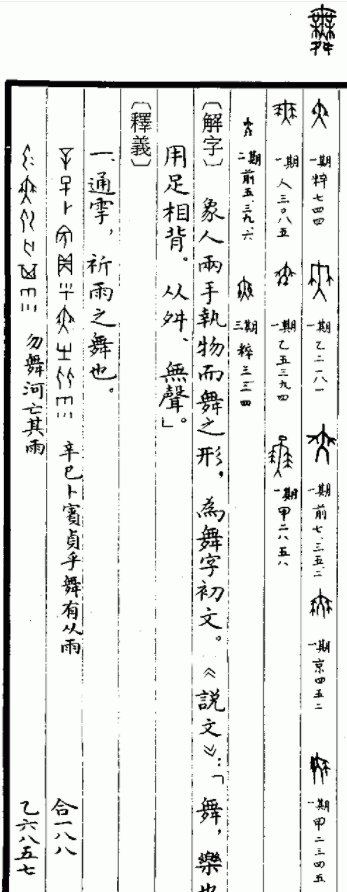 一期 粹七四四 一期 乙二一八一 一期 前七.三五.二 一期 京四五二 一期 甲二三四五
一期 人三〇八五 一期 乙五三九四 一期 甲二八五八
二期 前五.三九.六 三期 粹
〔解字〕 象人兩手執物而舞之形，為舞字初文。《說文》：「舞，樂也
用足相背。从舛、無聲」。
〔釋義〕
一、通雩，祈雨之舞也。
辛巳卜賓貞乎舞有从雨 合一八八
勿舞河亡其雨 乙六八五七